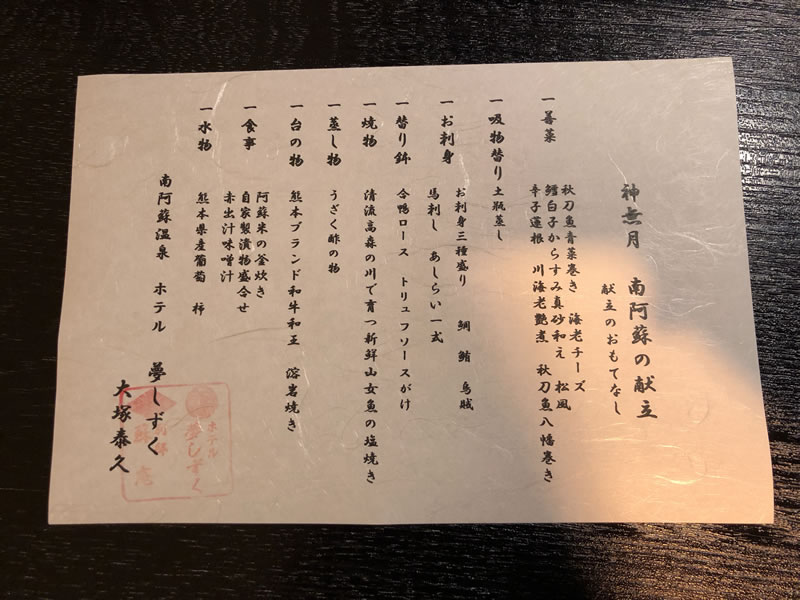 神無月 南阿蘇の献立
献立のおもてなし
一 善菜
秋刀魚青菜巻き 海老チーズ
鱈白子からすみ真砂和え 松風
辛子蓮根 川海老艶煮 秋刀魚八幡巻き
一 吸物替り 土瓶蒸し
一 お刺身
お刺身三種盛り 鯛 鮪 烏賊
馬刺し あしらい一式
一 替り鉢 合鴨ロース トリュフソースがけ
一 焼物 清流高森の川で育つ新鮮山女魚の塩焼き
一 蒸し物 うざく酢の物
一 台の物 熊本ブランド和牛和王 溶岩焼き
一 食事
阿蘇米の釜炊き
自家製漬物盛合せ
赤出汁味噌汁
一 水物 熊本県産葡萄 柿
南阿蘇温泉 ホテル 夢しずく
大塚泰久
ホテル
夢しずく